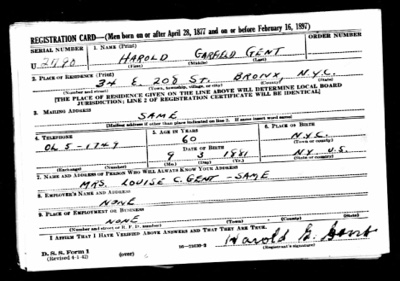 REGISTRATION CARD—(Men born on or after April 28, 1877 and on or before February 16, 1897)
SERIAL NUMBER 1. NAME (Print) ORDER NUMBER
U 2790 HAROLD GARFIELD GENT
(First) (Middle) (Last)
2. PLACE OF RESIDENCE (Print)
34 E. 208 ST. BRONX, N.Y.C.
(Number and street) (Town, township, village, or city) (County) (State)
[THE PLACE OF RESIDENCE GIVEN ON THE LINE ABOVE WILL DETERMINE LOCAL BOARD
JURISDICTION; LINE 2 OF REGISTRATION CERTIFICATE WILL BE IDENTICAL]
3. MAILING ADDRESS
SAME
[Mailing address if other than place indicated on line 2. If same insert word same]
4. TELEPHONE 5. AGE IN YEARS 6. PLACE OF BIRTH
60 N.Y.C.
OL 5-1749 DATE OF BIRTH (Town or county)
9 3 1881 N.Y. U.S.
(Exchange) (Number) (Mo.) (Day) (Yr.) (State or country)
7. NAME AND ADDRESS OF PERSON WHO WILL ALWAYS KNOW YOUR ADDRESS
MRS. LOUISE C. GENT - SAME
8. EMPLOYER'S NAME AND ADDRESS
NONE
9. PLACE OF EMPLOYMENT OR BUSINESS
NONE
(Number and street or R. F. D. number) (Town) (County) (State)
I AFFIRM THAT I HAVE VERIFIED ABOVE ANSWERS AND THAT THEY ARE TRUE.
D. S. S. Form 1 Harold G. Gent
(Revised 4-1-42) (over) (Registrant's signature)